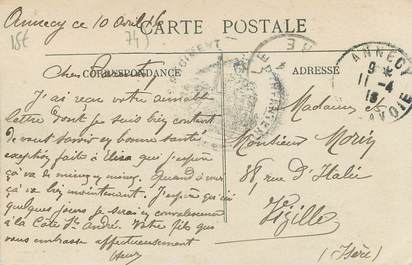 Annecy ce 10 Avril 15
15f
CARTE POSTALE
CORRESPONDANCE
ADRESSE
RÉGIMENT
D'INFANTERIE
ANNECY
9
11 -4
15
SAVOIE
Chers Parents
J'ai reçu votre aimable
lettre dont je suis bien content
de vous savoir en bonne santé
exception faite à Elisa qui j'espère
ça va de mieux en mieux. Quand à moi
ça va bien maintenant. J'espère qu'ici
quelques jours je serai en convalescence
à la Côte St André. Votre fils qui
vous embrasse affectueusement
Madame et
Monsieur Morin
rue d'Italie
Vizille
(Isère)